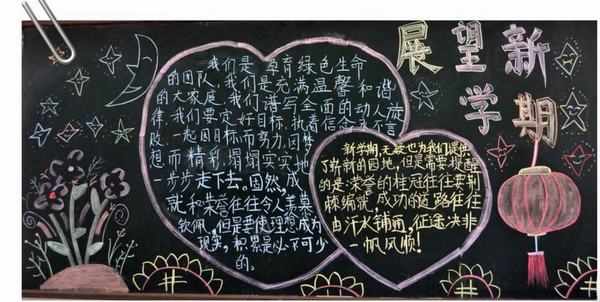 展望新
学期
我们是孕育绿色生命
的团队，我们是充满温馨和谐
的大家庭，我们谱写全面的动人旋
律，我们要定好目标，执着信念，不言
败，一起因目标而努力，因梦
想而精彩，塌塌实实地
一步步走下去。固然，成
就和荣誉往往令人羡慕
钦佩，但是要使理想成为
现实，积累是必不可少
的。
新学期，无疑也为我们提供
了崭新的园地，但是需要提醒
的是：荣誉的桂冠往往要荆
棘编就，成功的道路往往
由汗水铺通，征途决非
一帆风顺！